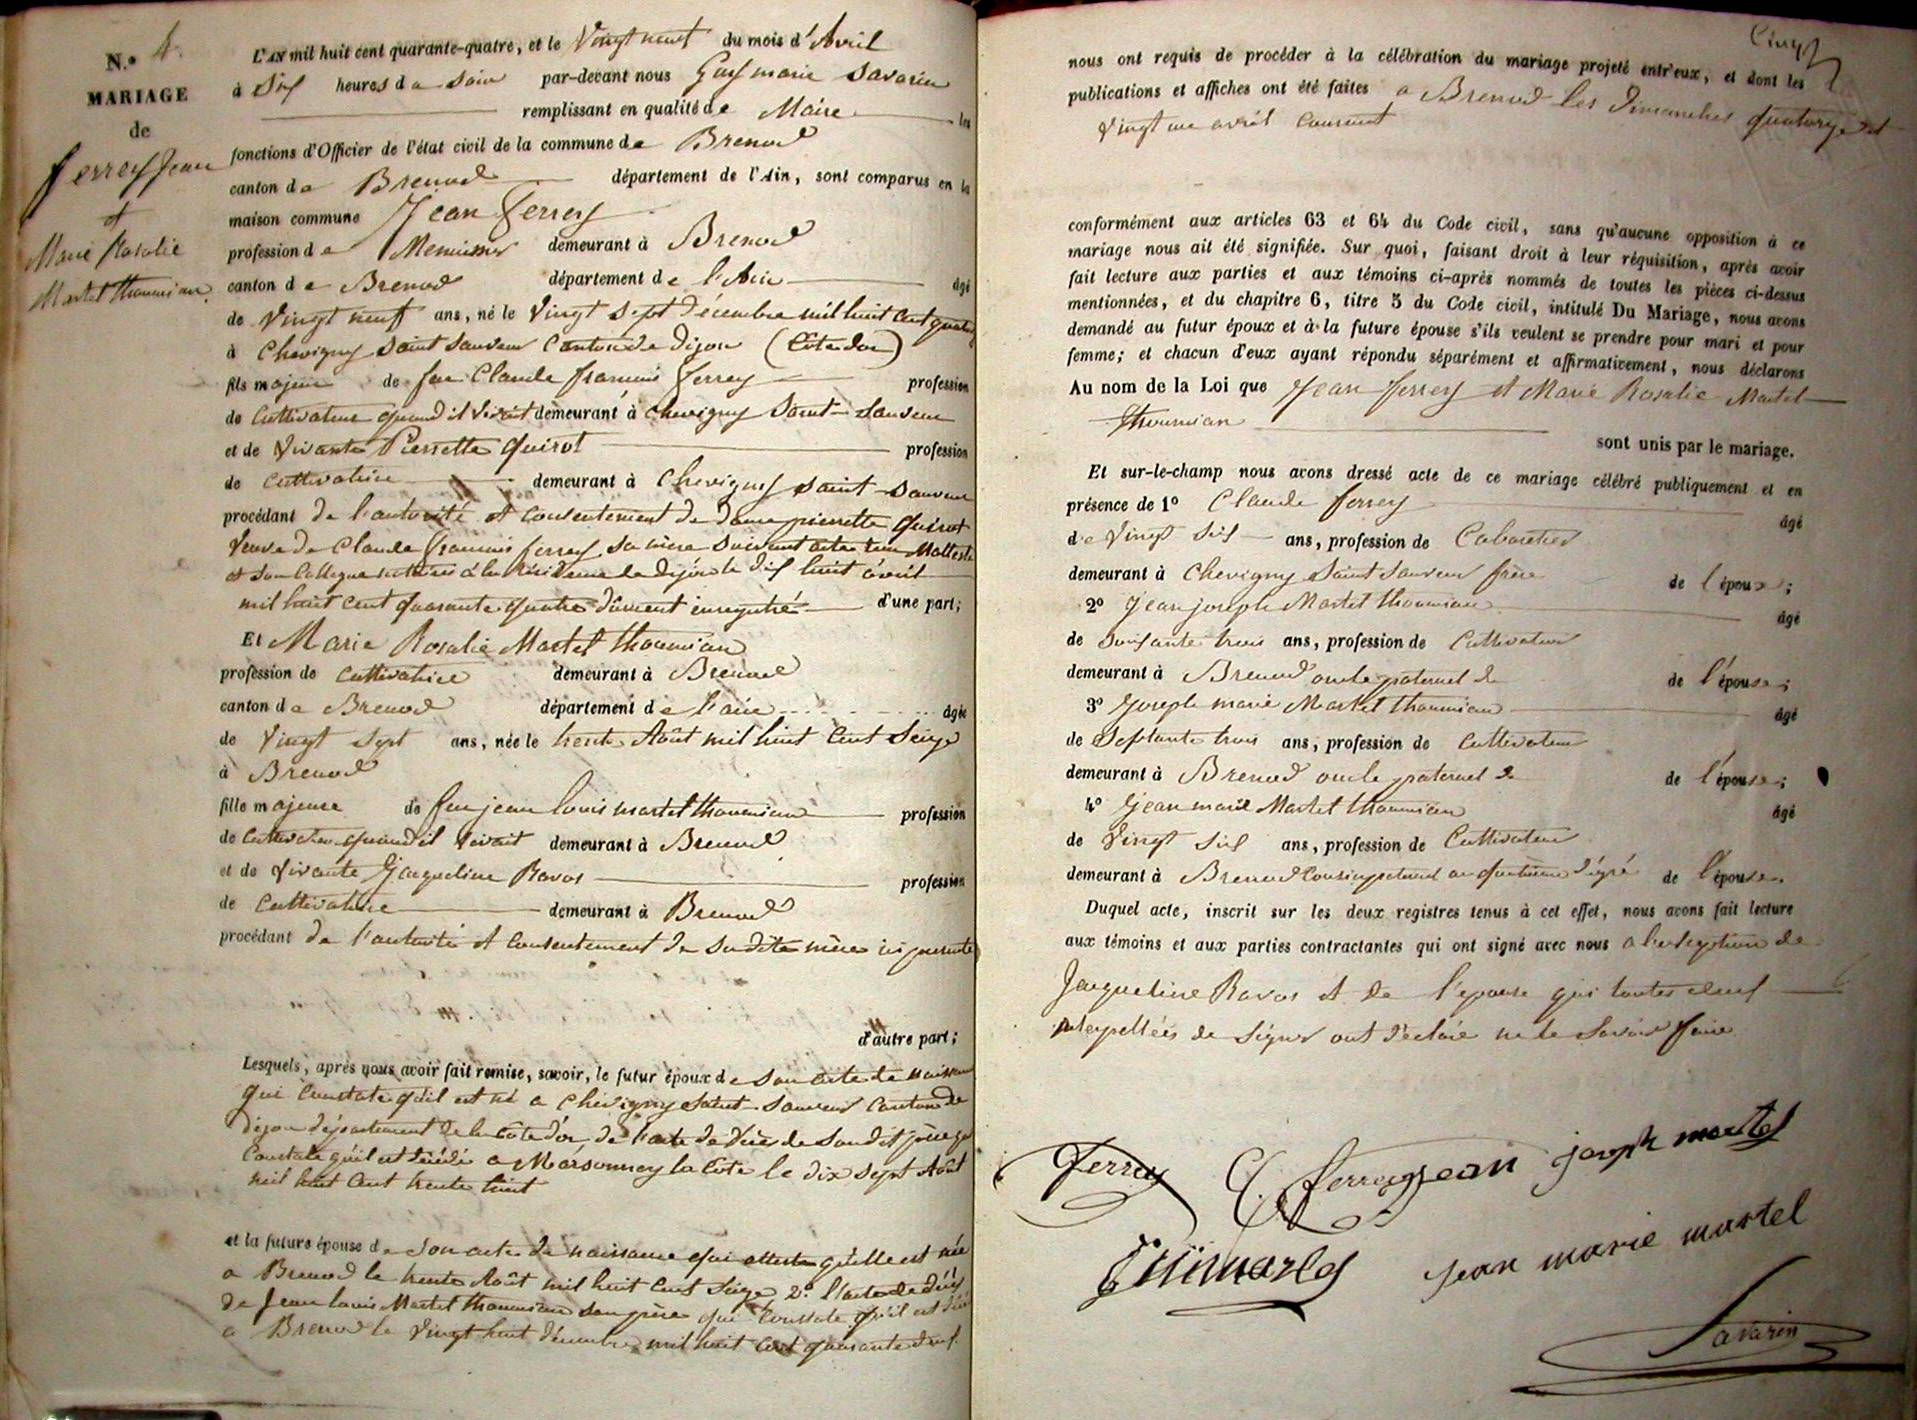 N.º 4.
MARIAGE
de
ferrey Jean
et
Marie Rosalie
Martel thoumian.
L'AN mil huit cent quarante-quatre, et le Vingt neuf du mois d'Avril
à Six heures du soir par-devant nous Guy marie Savarin
remplissant en qualité de Maire les
fonctions d'Officier de l'état civil de la commune de Brenod
canton de Brenod département de l'Ain, sont comparus en la
maison commune Jean ferrey
profession de Menuisier demeurant à Brenod
canton de Brenod département de l'Ain âgé
de Vingt neuf ans, né le Vingt sept décembre mil huit cent quatorze
à Chevigny saint sauveur Canton de dijon (Côte dor)
fils majeur de feu Claude francois ferrey profession
de Cultivateur quand il vivait demeurant à chevigny saint-sauveur
et de vivante Pierrette quirot profession
de cultivatrice demeurant à chevigny saint-sauveur
procédant de l'autorité et consentement de dame pierrette quirot
veuve de Claude francois ferrey sa mère suivant acte reçu Malteste
et son Collegue notaires à la résidence de dijon le dix huit avril
mil huit cent quarante quatre dûment enregistré d'une part;
Et Marie Rosalie Martel thoumian
profession de cultivatrice demeurant à Brenod
canton de Brenod département de l'ain âgée
de Vingt sept ans, née le trente Août mil huit cent seize
à Brenod
fille majeure de feu jean louis martel thoumian profession
de cultivateur quand il vivait demeurant à Brenod
et de vivante Jacqueline Ravos profession
de cultivatrice demeurant à Brenod
procédant de l'autorité et consentement de sa dite mère ici présente
d'autre part;
Lesquels, après nous avoir fait remise, savoir, le futur époux de son acte de naissance
qui constate qu'il est né a chevigny saint-sauveur Canton de
dijon département de la Côte d'or, de l'acte de décès de son dit père qui
constate qu'il est décédé a Marsonnay la Cote le dix sept Août
mil huit cent trente huit
et la future épouse de son acte de naissance qui atteste qu'elle est née
a Brenod le trente Août mil huit cent seize 2.º l'acte de décès
de Jean louis Martel thoumian son père qui constate qu'il est décédé
a Brenod le vingt huit décembre mil huit cent quarante deux.
Cinq
nous ont requis de procéder à la célébration du mariage projeté entr'eux, et dont les
publications et affiches ont été faites a Brenod les dimanches quatorze et
vingt un avril courant
conformément aux articles 63 et 64 du Code civil, sans qu'aucune opposition à ce
mariage nous ait été signifiée. Sur quoi, faisant droit à leur réquisition, après avoir
fait lecture aux parties et aux témoins ci-après nommés de toutes les pièces ci-dessus
mentionnées, et du chapitre 6, titre 5 du Code civil, intitulé Du Mariage, nous avons
demandé au futur époux et à la future épouse s'ils veulent se prendre pour mari et pour
femme; et chacun d'eux ayant répondu séparément et affirmativement, nous déclarons
Au nom de la Loi que Jean ferrey et Marie Rosalie Martel
Thoumian
sont unis par le mariage.
Et sur-le-champ nous avons dressé acte de ce mariage célébré publiquement et en
présence de 1º Claude ferrey âgé
de Vingt six ans, profession de Cabaretier
demeurant à chevigny saint sauveur frère de l'époux;
2º Jean joseph Martel thoumian âgé
de soixante trois ans, profession de Cultivateur
demeurant à Brenod oncle paternel de de l'épouse;
3º Joseph marie Martel thoumian âgé
de Septante trois ans, profession de Cultivateur
demeurant à Brenod oncle paternel de de l'épouse;
4º Jean marie Martel thoumian âgé
de Vingt six ans, profession de Cultivateur
demeurant à Brenod Cousin paternel au quatrième dégré de l'épouse.
Duquel acte, inscrit sur les deux registres tenus à cet effet, nous avons fait lecture
aux témoins et aux parties contractantes qui ont signé avec nous a l'exception de
Jacqueline Ravos et de l'épouse qui toutes deux
interpellées de signer ont déclaré ne le savoir faire
ferrey C. ferrey jean joseph martel
jean marie martel
Savarin